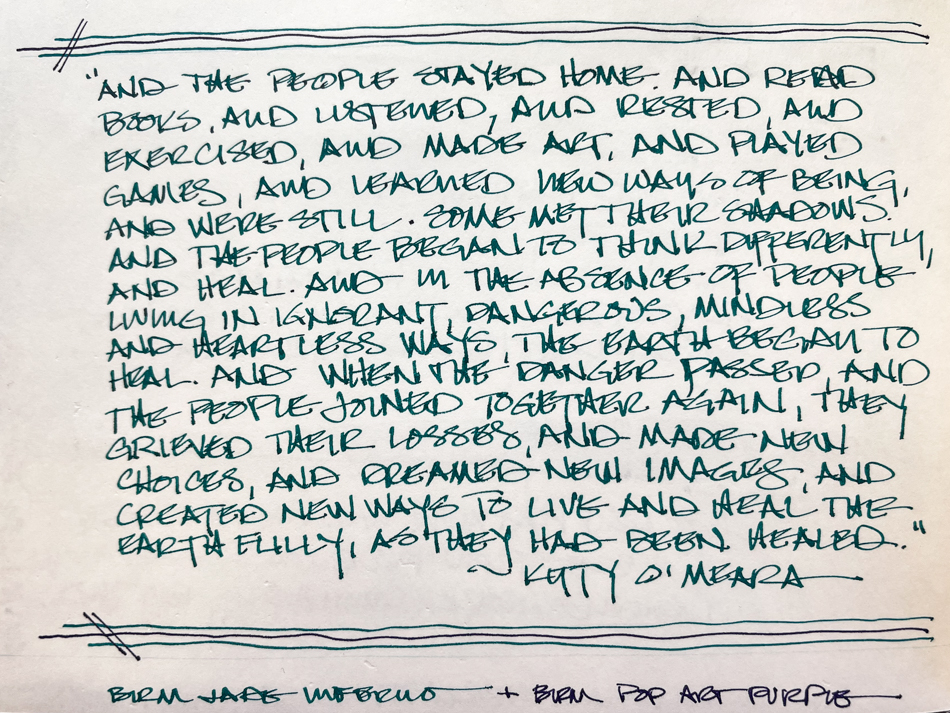 "AND THE PEOPLE STAYED HOME. AND READ
BOOKS, AND LISTENED, AND RESTED, AND
EXERCISED, AND MADE ART, AND PLAYED
GAMES, AND LEARNED NEW WAYS OF BEING,
AND WERE STILL. SOME MET THEIR SHADOWS.
AND THE PEOPLE BEGAN TO THINK DIFFERENTLY,
AND HEAL. AND IN THE ABSENCE OF PEOPLE
LIVING IN IGNORANT, DANGEROUS, MINDLESS
AND HEARTLESS WAYS, THE EARTH BEGAN TO
HEAL. AND WHEN THE DANGER PASSED, AND
THE PEOPLE JOINED TOGETHER AGAIN, THEY
GRIEVED THEIR LOSSES, AND MADE NEW
CHOICES, AND DREAMED NEW IMAGES, AND
CREATED NEW WAYS TO LIVE AND HEAL THE
EARTH FULLY, AS THEY HAD BEEN HEALED."
~ KITTY O'MEARA
BIRM JADE INFERNO + BIRM POP ART PURPLE